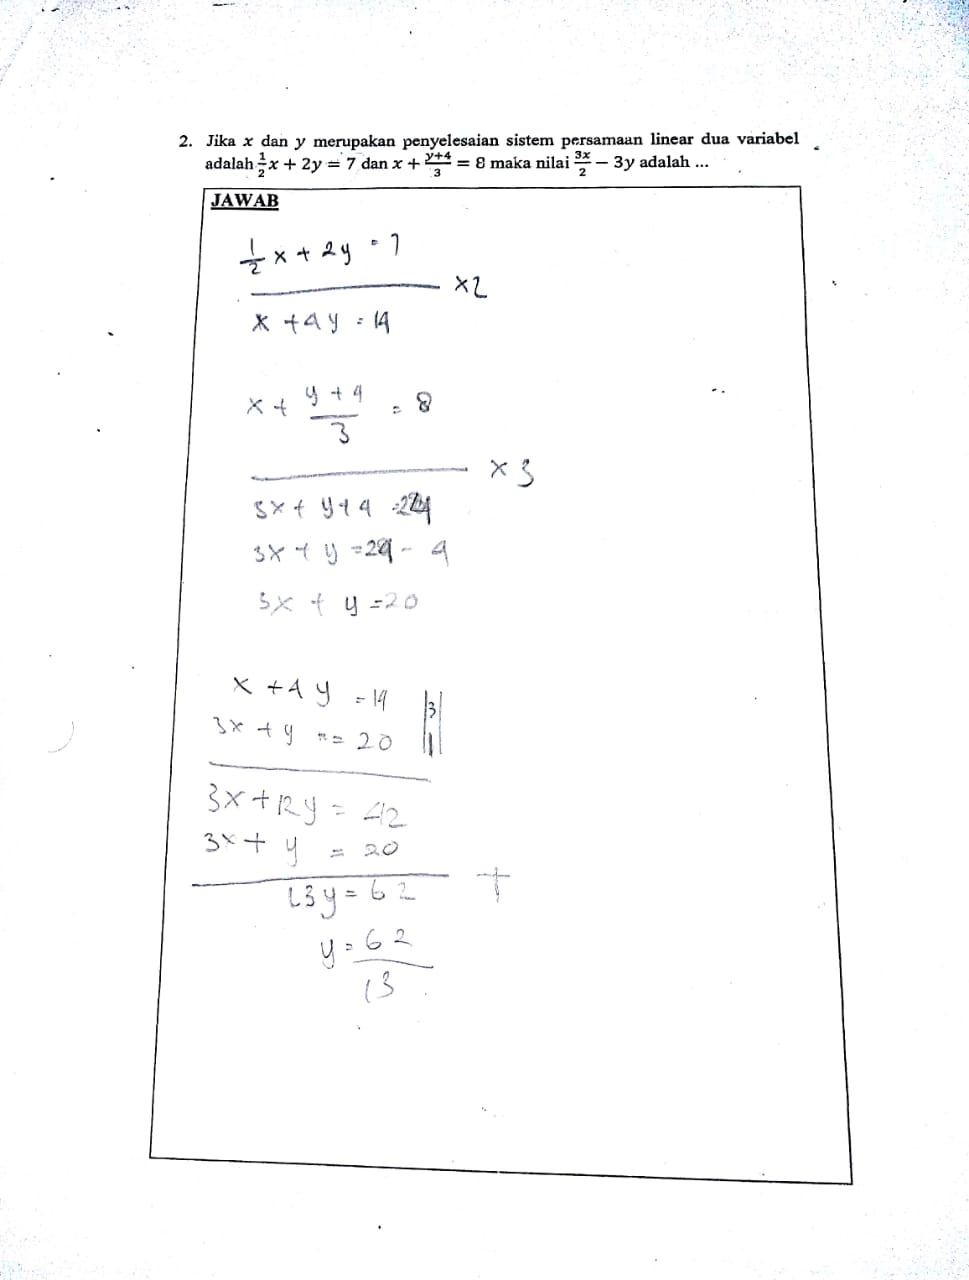 2. Jika x dan y merupakan penyelesaian sistem persamaan linear dua variabel
adalah 1/2 x + 2y = 7 dan x + (y+4)/3 = 8 maka nilai 3x/2 − 3y adalah ...
JAWAB
1/2 x + 2y = 7
×2
x + 4y = 14
x + (y + 4)/3 = 8
× 3
3x + y + 4 = 24
3x + y = 24 - 4
3x + y = 20
x + 4y = 14 | 3 |
3x + y = = 20 | 1 |
3x + 12y = 42
3x + y = 20
+
13y = 62
y = 62/13